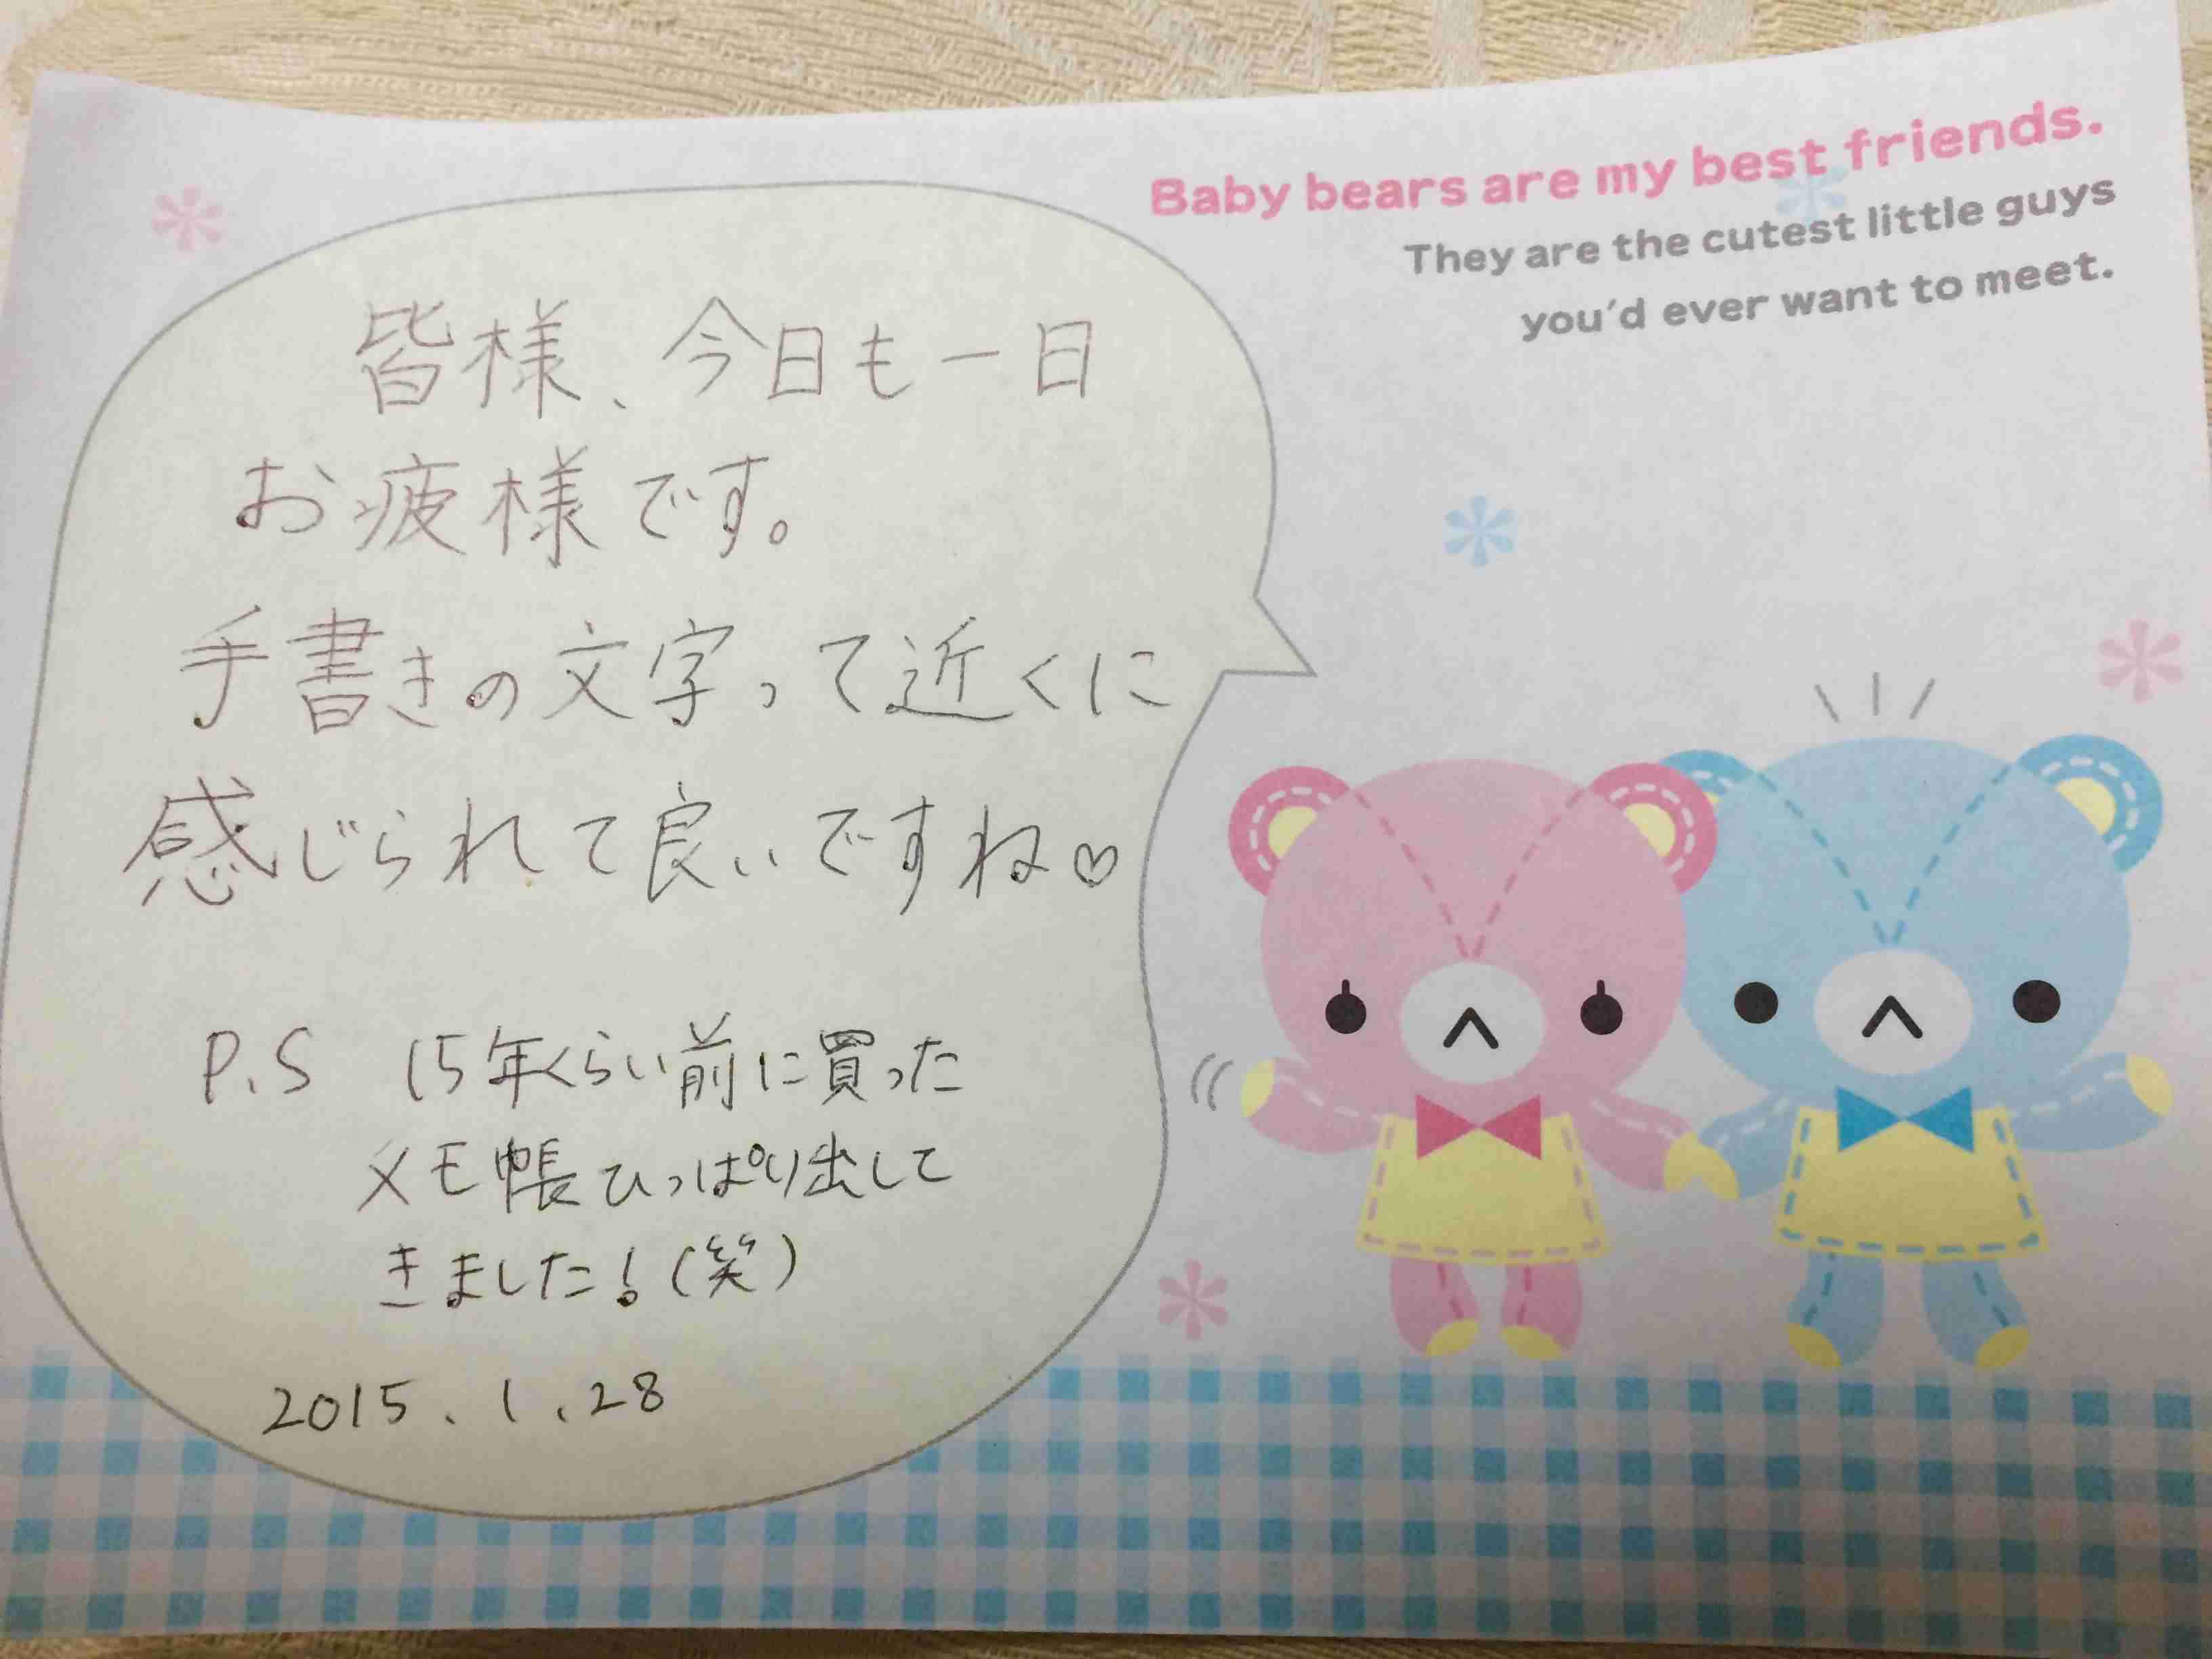 Baby bears are my best friends.
They are the cutest little guys
you'd ever want to meet.
皆様、今日も一日
お疲様です。
手書きの文字って近くに
感じられて良いですね♡
P.S 15年くらい前に買った
メモ帳ひっぱり出して
きました!(笑)
2015.1.28